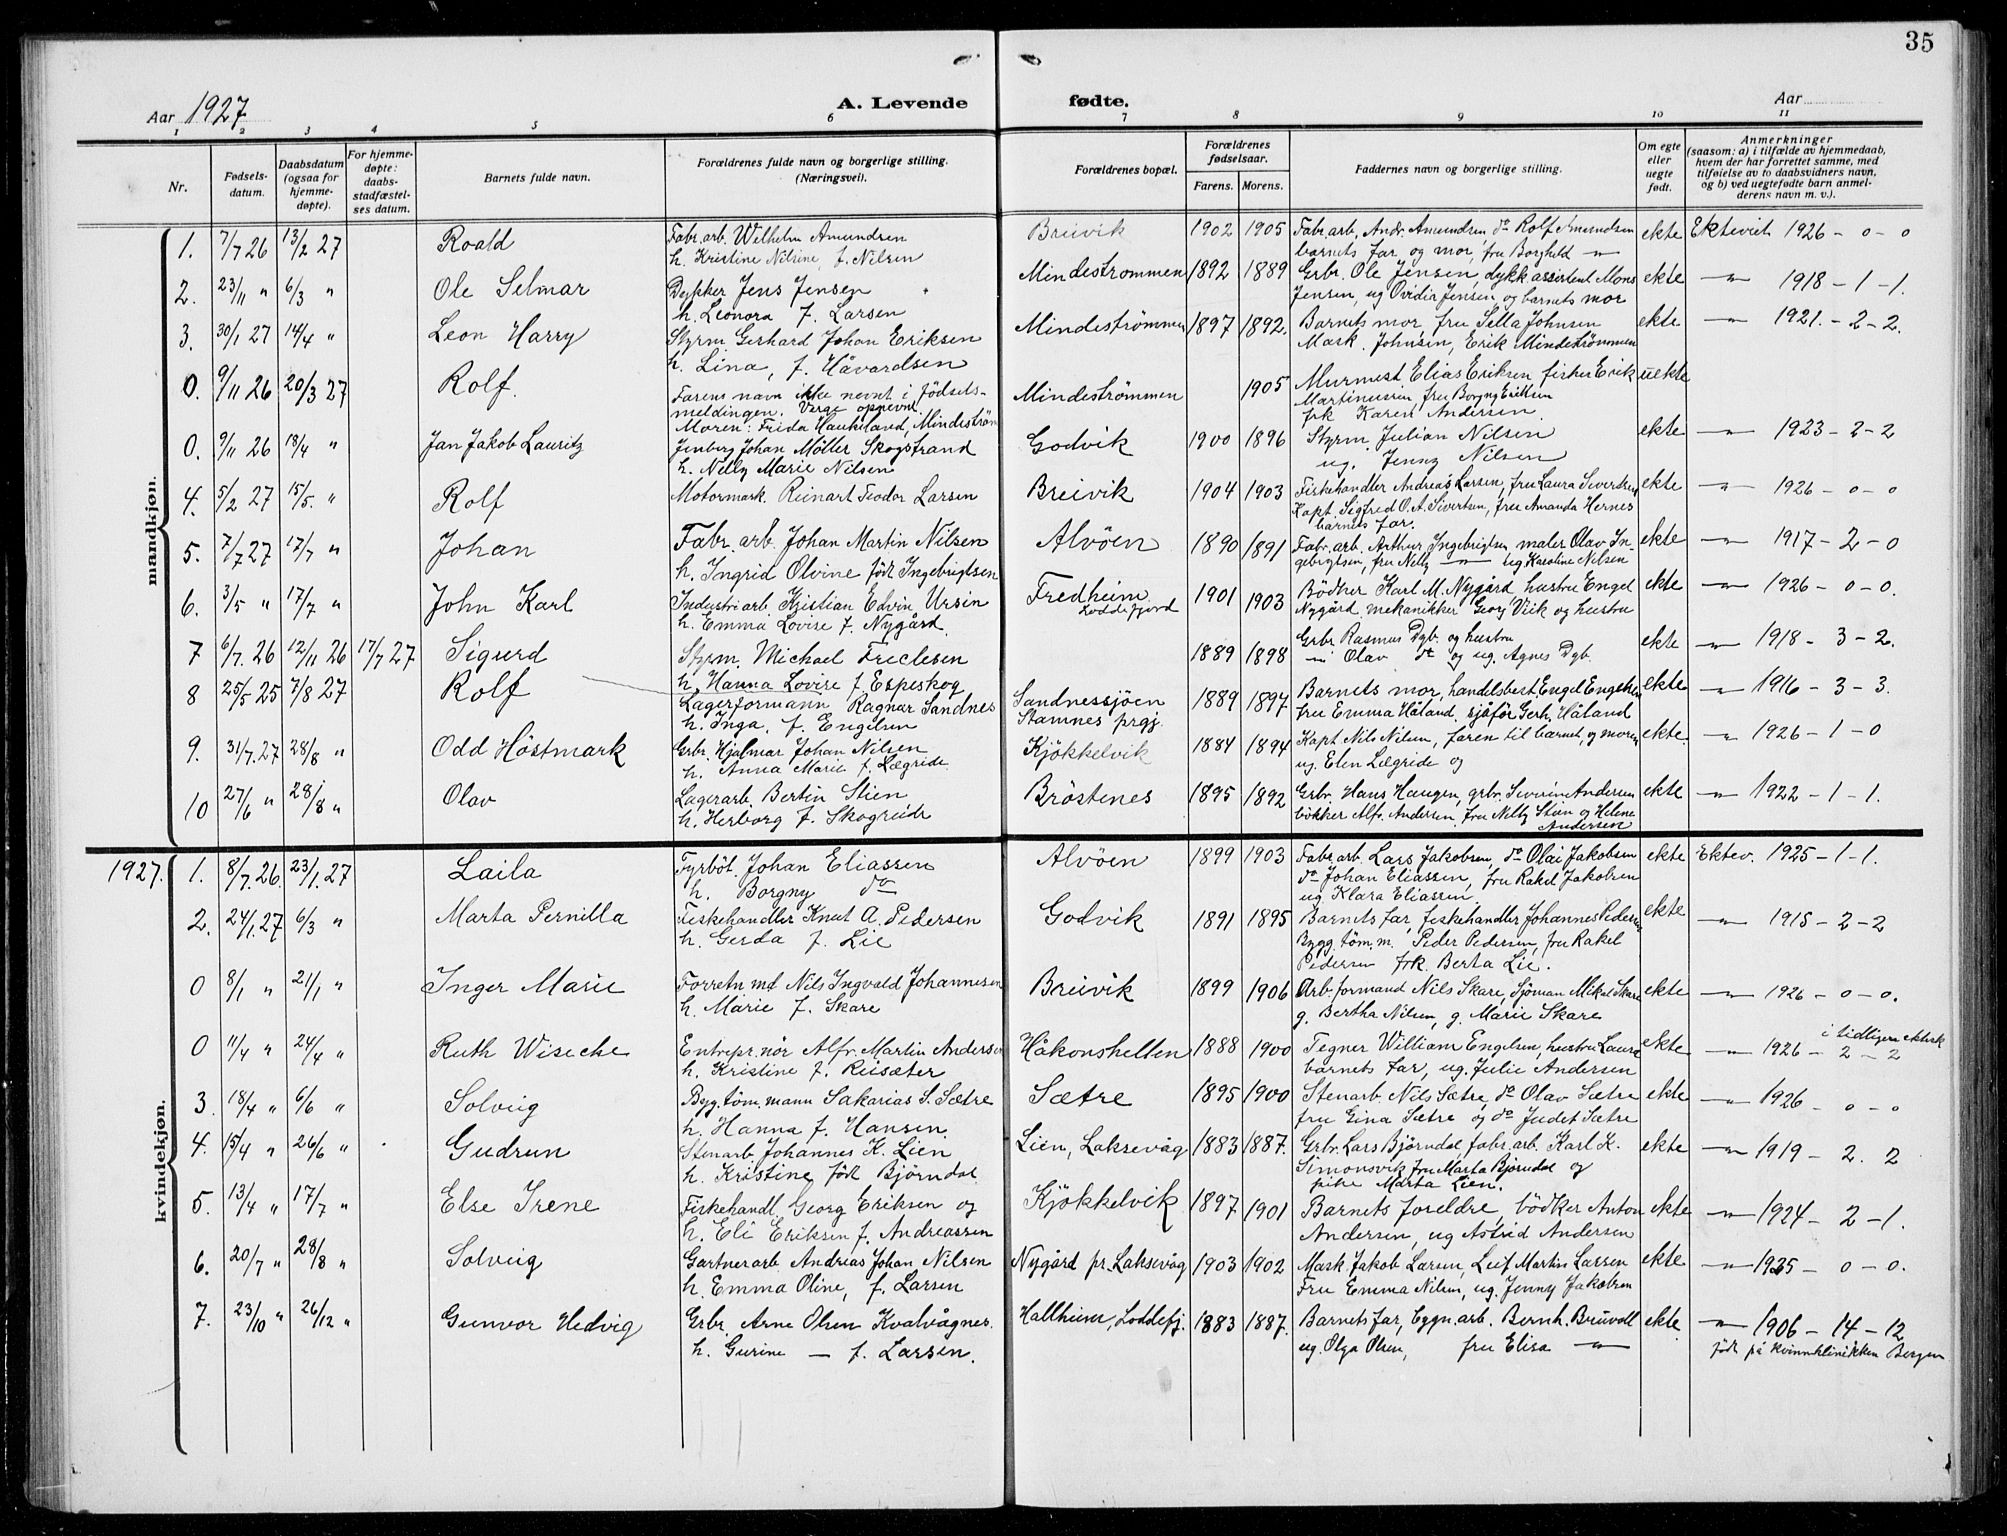 35
Aar 1927
A. Levende
fødte.
Aar
1 2 3 4 5 6 7 8 9 10 11
Nr.
Fødsels-
datum.
Daabsdatum
(ogsaa for
hjemme-
døpte).
For hjemme-
døpte:
daabs-
stadfæstel-
ses datum.
Barnets fulde navn.
Forældrenes fulde navn og borgerlige stilling.
(Næringsvei).
Forældrenes bopæl.
Forældrenes
fødselsaar.
Farens. Morens.
Faddernes navn og borgerlige stilling.
Om egte
eller
uegte
født.
Anmerkninger
(saasom: a) i tilfælde av hjemmedaab,
hvem der har forrettet samme, med
tilføielse av to daabsvidners navn,
og b) ved uegtefødte barn anmel-
derens navn m. v.).
mandkjøn.
1. 7/7 26 13/2 27 Roald Fabr. arb. Wilhelm Amundsen Breivik 1902 1905 Fabr. arb. Andr. Amundsen do Rolf Amundsen ekte Ekteviet 1926 - 0 - 0
h. Kristine Nilsine, f. Nilsen barnets far og mor, fru Borghild — " —
2. 23/11 " 6/3 " Ole Selmar Dykker Jens Jensen Mindestrømmen 1892 1889 Grbr. Ole Jensen, dykk. assistent Mons ekte — " — 1918 - 1 - 1.
h. Leonora f. Larsen Jensen, ug Ovidia Jensen og barnets mor
3. 30/1 27 14/4 " Leon Harry Styrm Gerhard Johan Eriksen Mindestrømmen 1897 1892. Barnets mor, fru Sella Johnsen ekte — " — 1921. - 2 - 2.
h. Lina, f. Håvardsen Mask. Johnsen, Erik Mindestrømmen
0. 9/11 26 20/3 27 Rolf. Farens navn ikke nevnt i fødsels- Mindestrømmen 1905 Murmest. Elias Eriksen, fisker Erik uekte
meldingen. Verge opnevnt. Martinussen, fru Borgny Eriksen
Moren: Frida Haukeland, Mindestrøm frk Karen Andersen.
0. 9/11 26 18/4 " Jan Jakob Lauritz Jenberg Johan Møller Skogstrand Godvik 1900 1896 Styrm. Julian Nilsen ekte — " — 1923 - 2 - 2
h. Nelly Marie Nilsen ug. Jenny Nilsen
4. 5/2 27 15/5. " Rolf Motormask. Reinart Teodor Larsen Breivik 1904 1903 Fiskehandler Andreas Larsen, fru Laura Sivertsen ekte — " — 1926 - 0 - 0
Kapt. Sigfred O. A. Sivertsen, fru Amanda Hernes
barnets far.
5. 7/7 27 17/7 " Johan Fabr. arb. Johan Martin Nilsen Alvöen 1890 1891 Fabr. arb. Arthur Ingebrigtsen, maler Olav In- ekte — " — 1917 - 2 - 0
h. Ingrid Olvine født Ingebrigtsen gebrigtsen, fru Nelly — " — ug Karoline Nilsen
6. 3/5 " 17/7 " John Karl Industriarb. Kristian Edvin Ursin Fredheim 1901 1903 Bödker Karl M. Nygård, hustru Engel ekte — " — 1926 - 0 - 0.
h. Emma Lovise f. Nygård. Loddefjord Nygård, mekanikker Georg Viik og hustru
7 6/7. 26 12/11 26 17/7 27 Sigurd Styrm. Michael Fredesen 1889 1898 Grbr. Rasmus Dyb. og hustru ekte — " — 1918 - 3 - 2.
h. Hanna Lovise f Espeskog — " — Olav do og ug. Agnes Dyb.
8 25/5 25 7/8 27 Rolf Lagerformann Ragnar Sandnes Sandnessjöen 1889 1897 Barnets mor, handelsbest. Engel Engelsen ekte — " — 1916 - 3 - 3.
h. Inga, f. Engelsen Stamnes prgj. fru Emma Håland, sjåför Gerh. Håland
9. 31/7. 27 28/8 " Odd Höstmark Grbr. Hjalmar Johan Nilsen Kjökkelvik 1884 1894 Kapt. Nils Nilsen, faren til barnet, og moren ekte. — " — 1926 - 1 - 0
h. Anna Marie f. Lægride. ug. Elen Lægride og
10 27/6 " 28/8 " Olav Lagerarb. Bertin Stien Bröstenes 1895 1892 Grbr. Hans Haugen, grbr. Severin Andersen ekte — " — 1922 - 1 - 1.
h. Herborg f. Skogseide bökker Alfr. Andersen, fru Nelly Stien og Helene
Andersen
1927. kvindekjøn.
1. 8/7. 26. 23/1. 27 Laila Fyrböt. Johan Eliassen Alvöen 1899 1903 Fabr. arb. Lars Jakobsen, do Olai Jakobsen ekte Ektev. 1925 - 1 - 1.
h. Borgny do do Johan Eliassen, fru Rakel Jakobsen
ug Klara Eliassen.
2. 24/1. 27 6/3 " Marta Pernilla Fiskehandler Knut A. Pedersen Godvik 1891 1895 Barnets far, fiskehandler Johannes Pedersen ekte — " — 1915 - 2 - 2
h. Gerda f. Lie Bygg. töm. m. Peder Pedersen, fru Rakel
Pedersen frk. Berta Lie.
0 8/1 " 21/1 " Inger Marie Forretn. md Nils Ingvald Johannesen Breivik 1899 1906 Arb. formand Nils Skare, Sjöman Mikal Skare ekte — " — 1926 - 0 - 0.
h. Marie f. Skare g. Bertha Nilsen, g. Marie Skare
0 11/4 " 24/4 " Ruth Wiseche Entrepr. nör Alfr. Martin Andersen Håkonshellen 1888 1900 Tegner William Engelsen, hustru Laura ekte — " — 1926 - 2 - 2 i tidligere ektesk
h. Kristine f. Reisæter barnets far, ug. Julie Andersen
3. 18/4 " 6/6 " Solveig Byg. töm. mann Sakarias S. Sætre Sætre 1895 1900 Stenarb. Nils Sætre, do Olav Sætre ekte — " — 1926 - 0 - 0
h. Hanna f. Hansen. fru Gina Sætre og do Judet Sætre
4. 15/4 " 26/6 " Gudrun Stenarb. Johannes K. Lien Lien, Laksevåg 1883 1887. Grbr. Lars Björndal, fabr. arb. Karl K. ekte — " — 1919 - 2. 2
h. Kristine født Björndal Simonsvik, fru Marta Björndal og
pike Marta Lien.
5. 13/4 " 17/7 " Else Irene Fiskehandl. Georg Eriksen og Kjökkelvik 1897 1901 Barnets foreldre, bödker Anton ekte — " — 1924 - 2 - 1.
h. Eli Eriksen f. Andreassen Andersen, ug Astrid Andersen
6. 20/7 " 28/8 " Solveig Gartnerarb. Andreas Johan Nilsen Nygård pr. Laksevåg 1903 1902 Mask Jakob Larsen, Leif Martin Larsen ekte — " — 1925 - 0 - 0.
h. Emma Oline, f. Larsen Fru Emma Nilsen, ug. Jenny Jakobsen
7. 23/10 " 26/12 " Gunvor Hedvig Grbr. Arne Olsen Kvalvågnes. Hallheim, Loddefj. 1883 1887. Barnets far, bygn. arb. Bernh. Breivoll ekte — " — 1906 - 14 - 12
h. Gurine — f. Larsen. ug. Olga Olsen, fru Elisa — " — født på kvinneklinikken Bergen